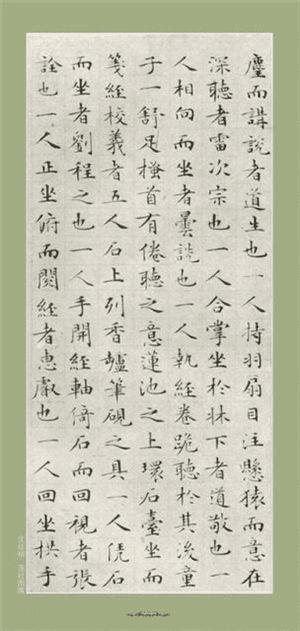 麈而講說者道生也一人持羽扇目注懸猿而意在
深聽者雷次宗也一人合掌坐於牀下者道敬也一
人相向而坐者曇詵也一人執經卷跪聽於其後童
子一舒足搔首有倦聽之意蓮池之上環石臺坐而
箋經校義者五人石上列香爐筆硯之具一人凭石
而坐者劉程之也一人手開經軸倚石而回視者張
詮也一人正坐俯而閱經者惠叡也一人回坐拱手